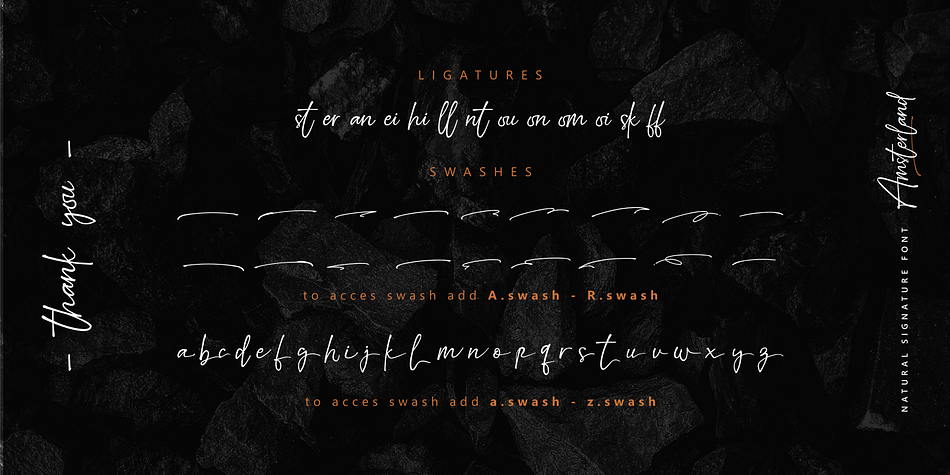 LIGATURES
st er an ei hi ll nt ou on om oi sk ff
SWASHES
to acces swash add A.swash - R.swash
a b c d e f g h i j k l m n o p q r s t u v w x y z
to acces swash add a.swash - z.swash
- thank you -
Amsterland
NATURAL SIGNATURE FONT